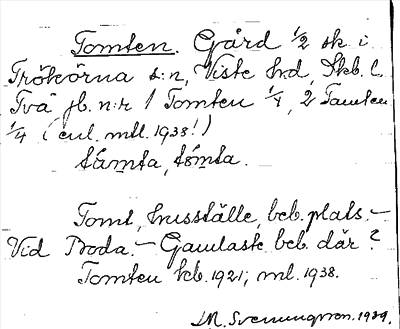 Tomten. Gård 1/2 sk. i
Trökörna s:n, Viste hrd, Skb. l.
Två jb. n:r 1 Tomten 1/4, 2 Tomten
1/4 (enl. mtl. 1938!)
tåmta, tömta.
Tomt, husställe, beb. plats.–
Vid Boda.– Gamlaste beb. där?
Tomten kb. 1921; ml. 1938.
M. Svenungsson. 1939.